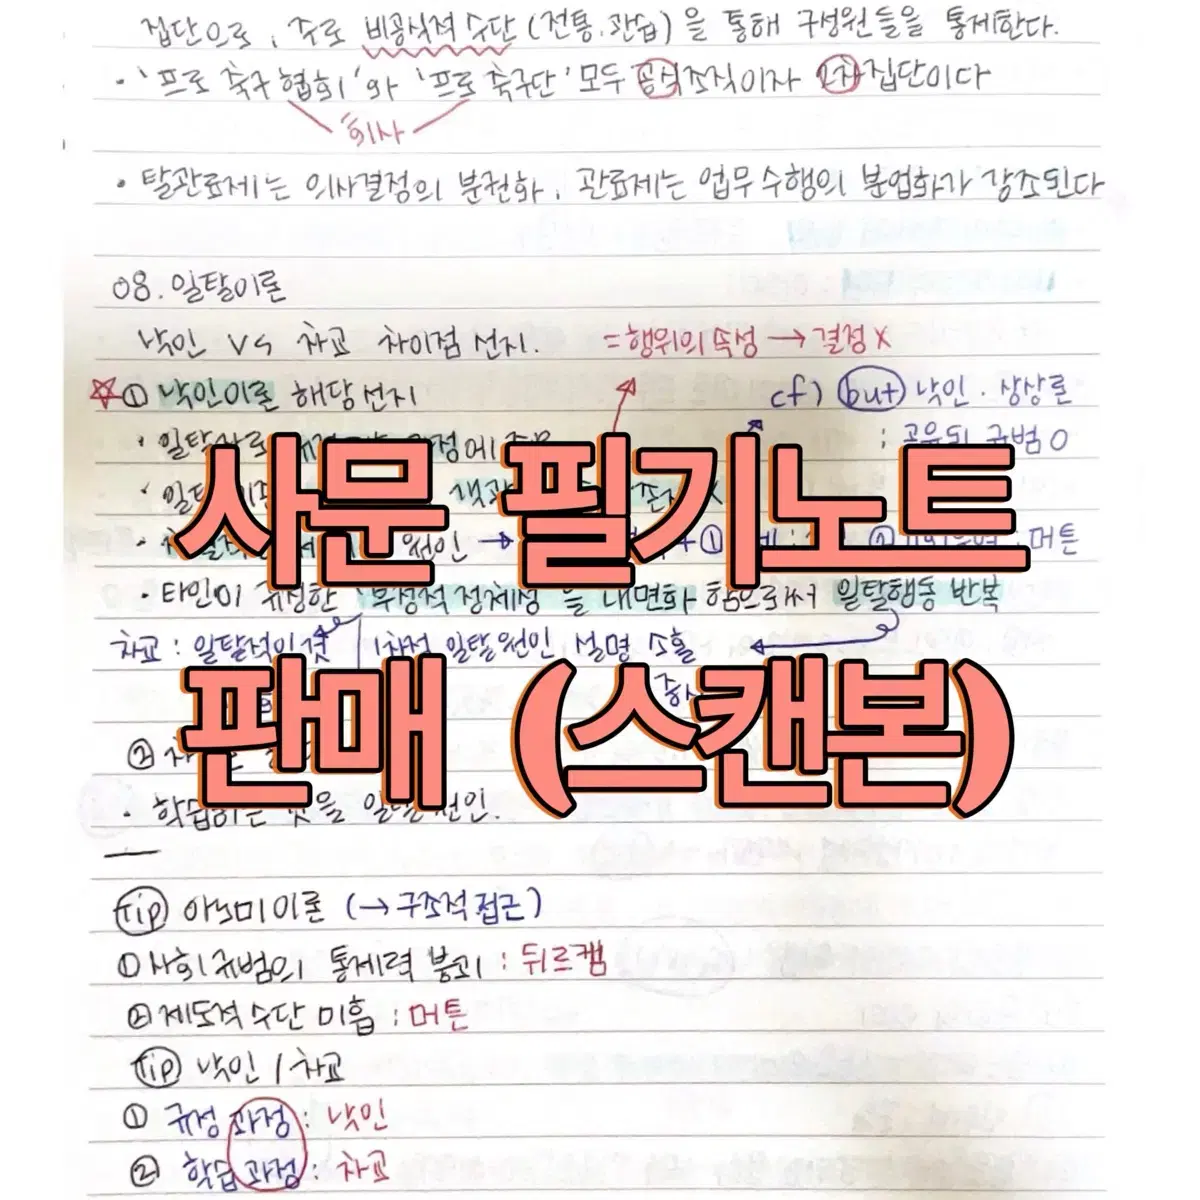 집단으로, 주로 비공식적 수단 (전통.관습)을 통해 구성원들을 통제한다.
· '프로 축구 협회'와 '프로 축구단' 모두 공식조직이자 2차 집단이다
회사
· 탈관료제는 의사결정의 분권화, 관료제는 업무수행의 분업화가 강조된다
08. 일탈이론
낙인 vs 차교 차이점 선지.
= 행위의 속성 → 결정 X
☆ ① 낙인이론 해당선지
cf) but 낙인 · 상상론
: 공유된 규범 O
사문 필기노트
원인 →
: 머튼
· 타인이 규정한 부정적 정체성을 내면화 함으로써 일탈행동 반복
차교 : 일탈적인 것
1차적 일탈 원인 설명 소홀
판매 (스캔본)
②
· 학습하는 것을 일탈 원인.
tip 아노미이론 (→ 구조적 접근)
① 사회규범의 통제력 붕괴 : 뒤르켐
② 제도적 수단 미흡 : 머튼
tip 낙인 / 차교
① 규정 과정 : 낙인
② 학습 과정 : 차교